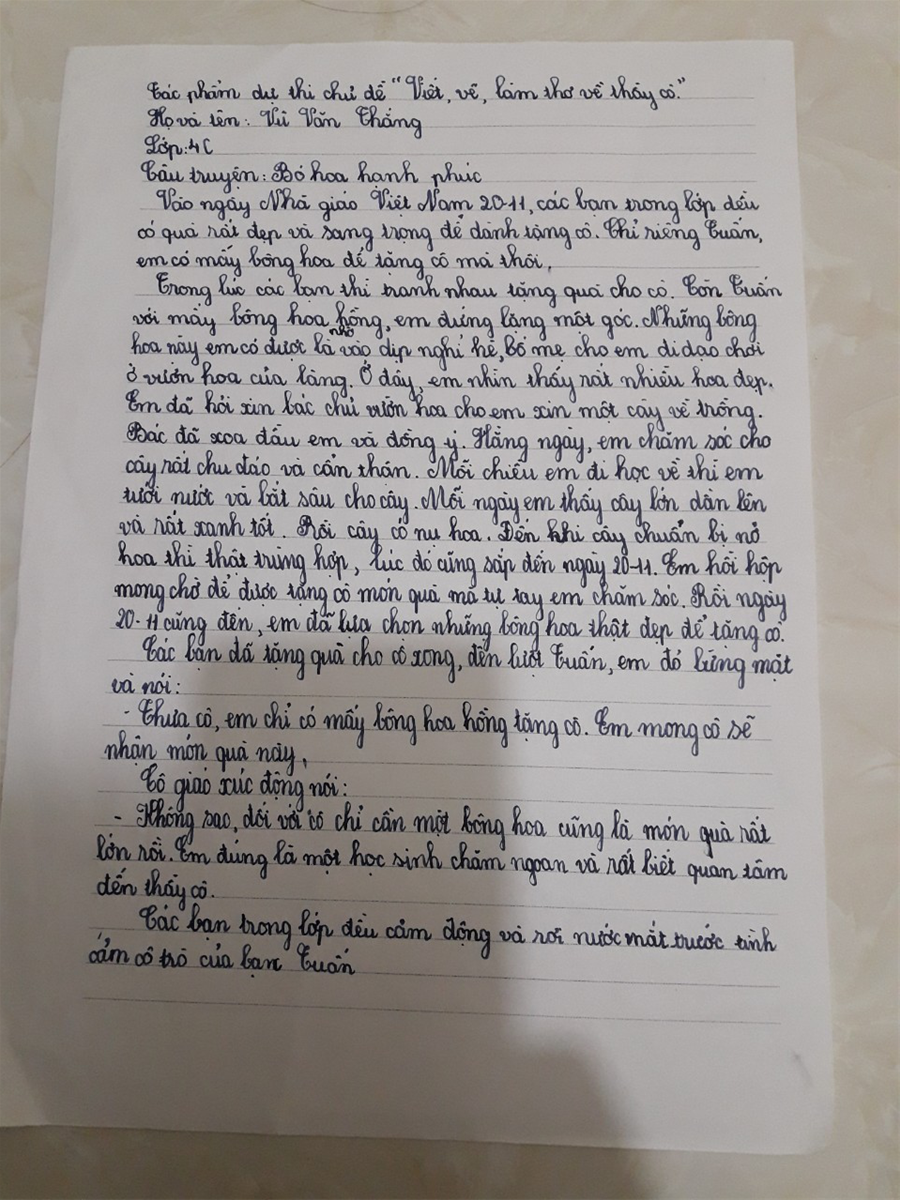 Tác phẩm dự thi chủ đề "Viết, vẽ, làm thơ về thầy cô."
Họ và tên: Vũ Văn Thắng
Lớp: 4C
Câu truyện: Bó hoa hạnh phúc
Vào ngày Nhà giáo Việt Nam 20-11, các bạn trong lớp đều
có quà rất đẹp và sang trọng để dành tặng cô. Chỉ riêng Tuấn,
em có mấy bông hoa để tặng cô mà thôi.
Trong lúc các bạn thi tranh nhau tặng quà cho cô. Còn Tuấn
với mấy bông hoa hồng, em đứng lặng một góc. Những bông
hoa này em có được là nhờ vào dịp nghỉ hè, bố mẹ cho em đi dạo chơi
ở vườn hoa của làng. Ở đấy, em nhìn thấy rất nhiều hoa đẹp.
Em đã hỏi xin bác chủ vườn hoa cho em xin một cây về trồng.
Bác đã xoa đầu em và đồng ý. Hằng ngày, em chăm sóc cho
cây rất chu đáo và cẩn thận. Mỗi chiều em đi học về thì em
tưới nước và bắt sâu cho cây. Mỗi ngày em thấy cây lớn dần lên
và rất xanh tốt. Rồi cây có nụ hoa. Đến khi cây chuẩn bị nở
hoa thì thật trùng hợp, lúc đó cũng sắp đến ngày 20-11. Em hồi hộp
mong chờ để được tặng cô món quà mà tự tay em chăm sóc. Rồi ngày
20-11 cũng đến, em đã lựa chọn những bông hoa thật đẹp để tặng cô.
Các bạn đã tặng quà cho cô xong, đến lượt Tuấn, em đỏ bừng mặt
và nói:
- Thưa cô, em chỉ có mấy bông hoa hồng tặng cô. Em mong cô sẽ
nhận món quà này.
Cô giáo xúc động nói:
- Không sao, đối với cô chỉ cần một bông hoa cũng là món quà rất
lớn rồi. Em đúng là một học sinh chăm ngoan và rất biết quan tâm
đến thầy cô.
Các bạn trong lớp đều cảm động và rơi nước mắt trước tình
cảm cô trò của bạn Tuấn